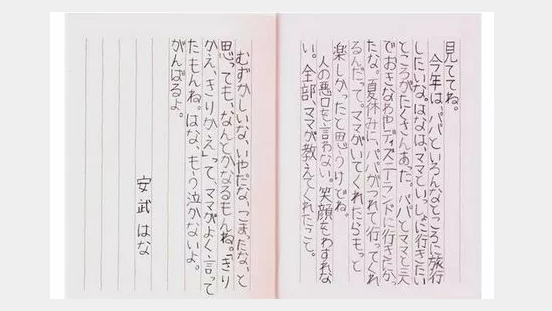 見ててね。
今年は、パパといろんなところに旅行
したいな。はなは、ママといっしょに行きたい
ところがたくさんあった。パパとママと三人
でおきなわやディズニーランドに行きたかっ
たな。夏休みに、パパがつれて行ってくれ
るんだって。ママがいてくれたらもっと
楽しかったと思うけどね。
人の悪口を言わない。笑顔をわすれな
い。全部、ママが教えてくれたこと。
むずかしいな、いやだな、こまったな、と
思っても、なんとかなるもんね。「きり
かえ、きりかえ」って、ママがよく言って
たもんね。はな、もう泣かないよ。
がんばるよ。
安武はな